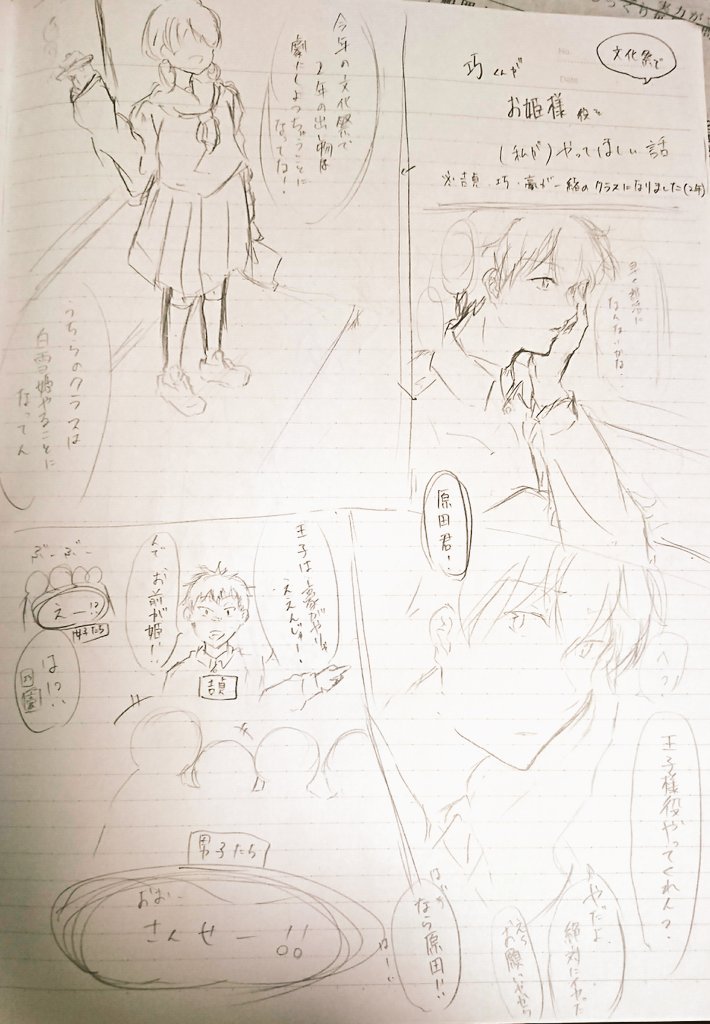 文化祭で
巧くんが
お姫様役を
(私が)やってほしい話
※吉貞・巧・豪が一緒のクラスになりました(2年)
早く部活に
なんないかな…
原田君!
今年の文化祭で
2年の出し物は
劇にしよっちゅうことに
なってな!
うちらのクラスは
白雪姫やることに
なってん
へ?
王子様役やってくれん?
やだよ
絶対にイヤだ
お願いやから
なら原田!!
王子は豪がやりゃ
ええんじゃ!
んで お前が姫!!
吉貞
ぶーぶー
えー!?
女子たち
は!?
巧
豪
男子たち
おおー
さんせー!!